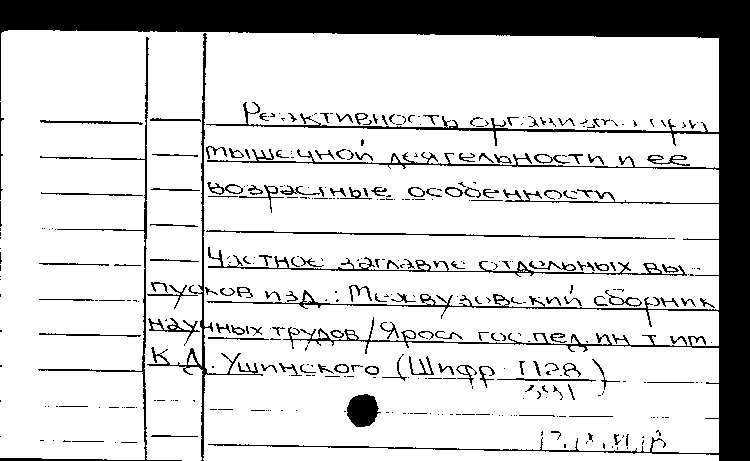 Реактивность организма при
мышечной деятельности и ее
возрастные особенности
Частное заглавие отдельных вы-
пусков изд.: Межвузовский сборник
научных трудов/Яросл гос пед ин-т им.
К.Д. Ушинского (Шифр П28/391)